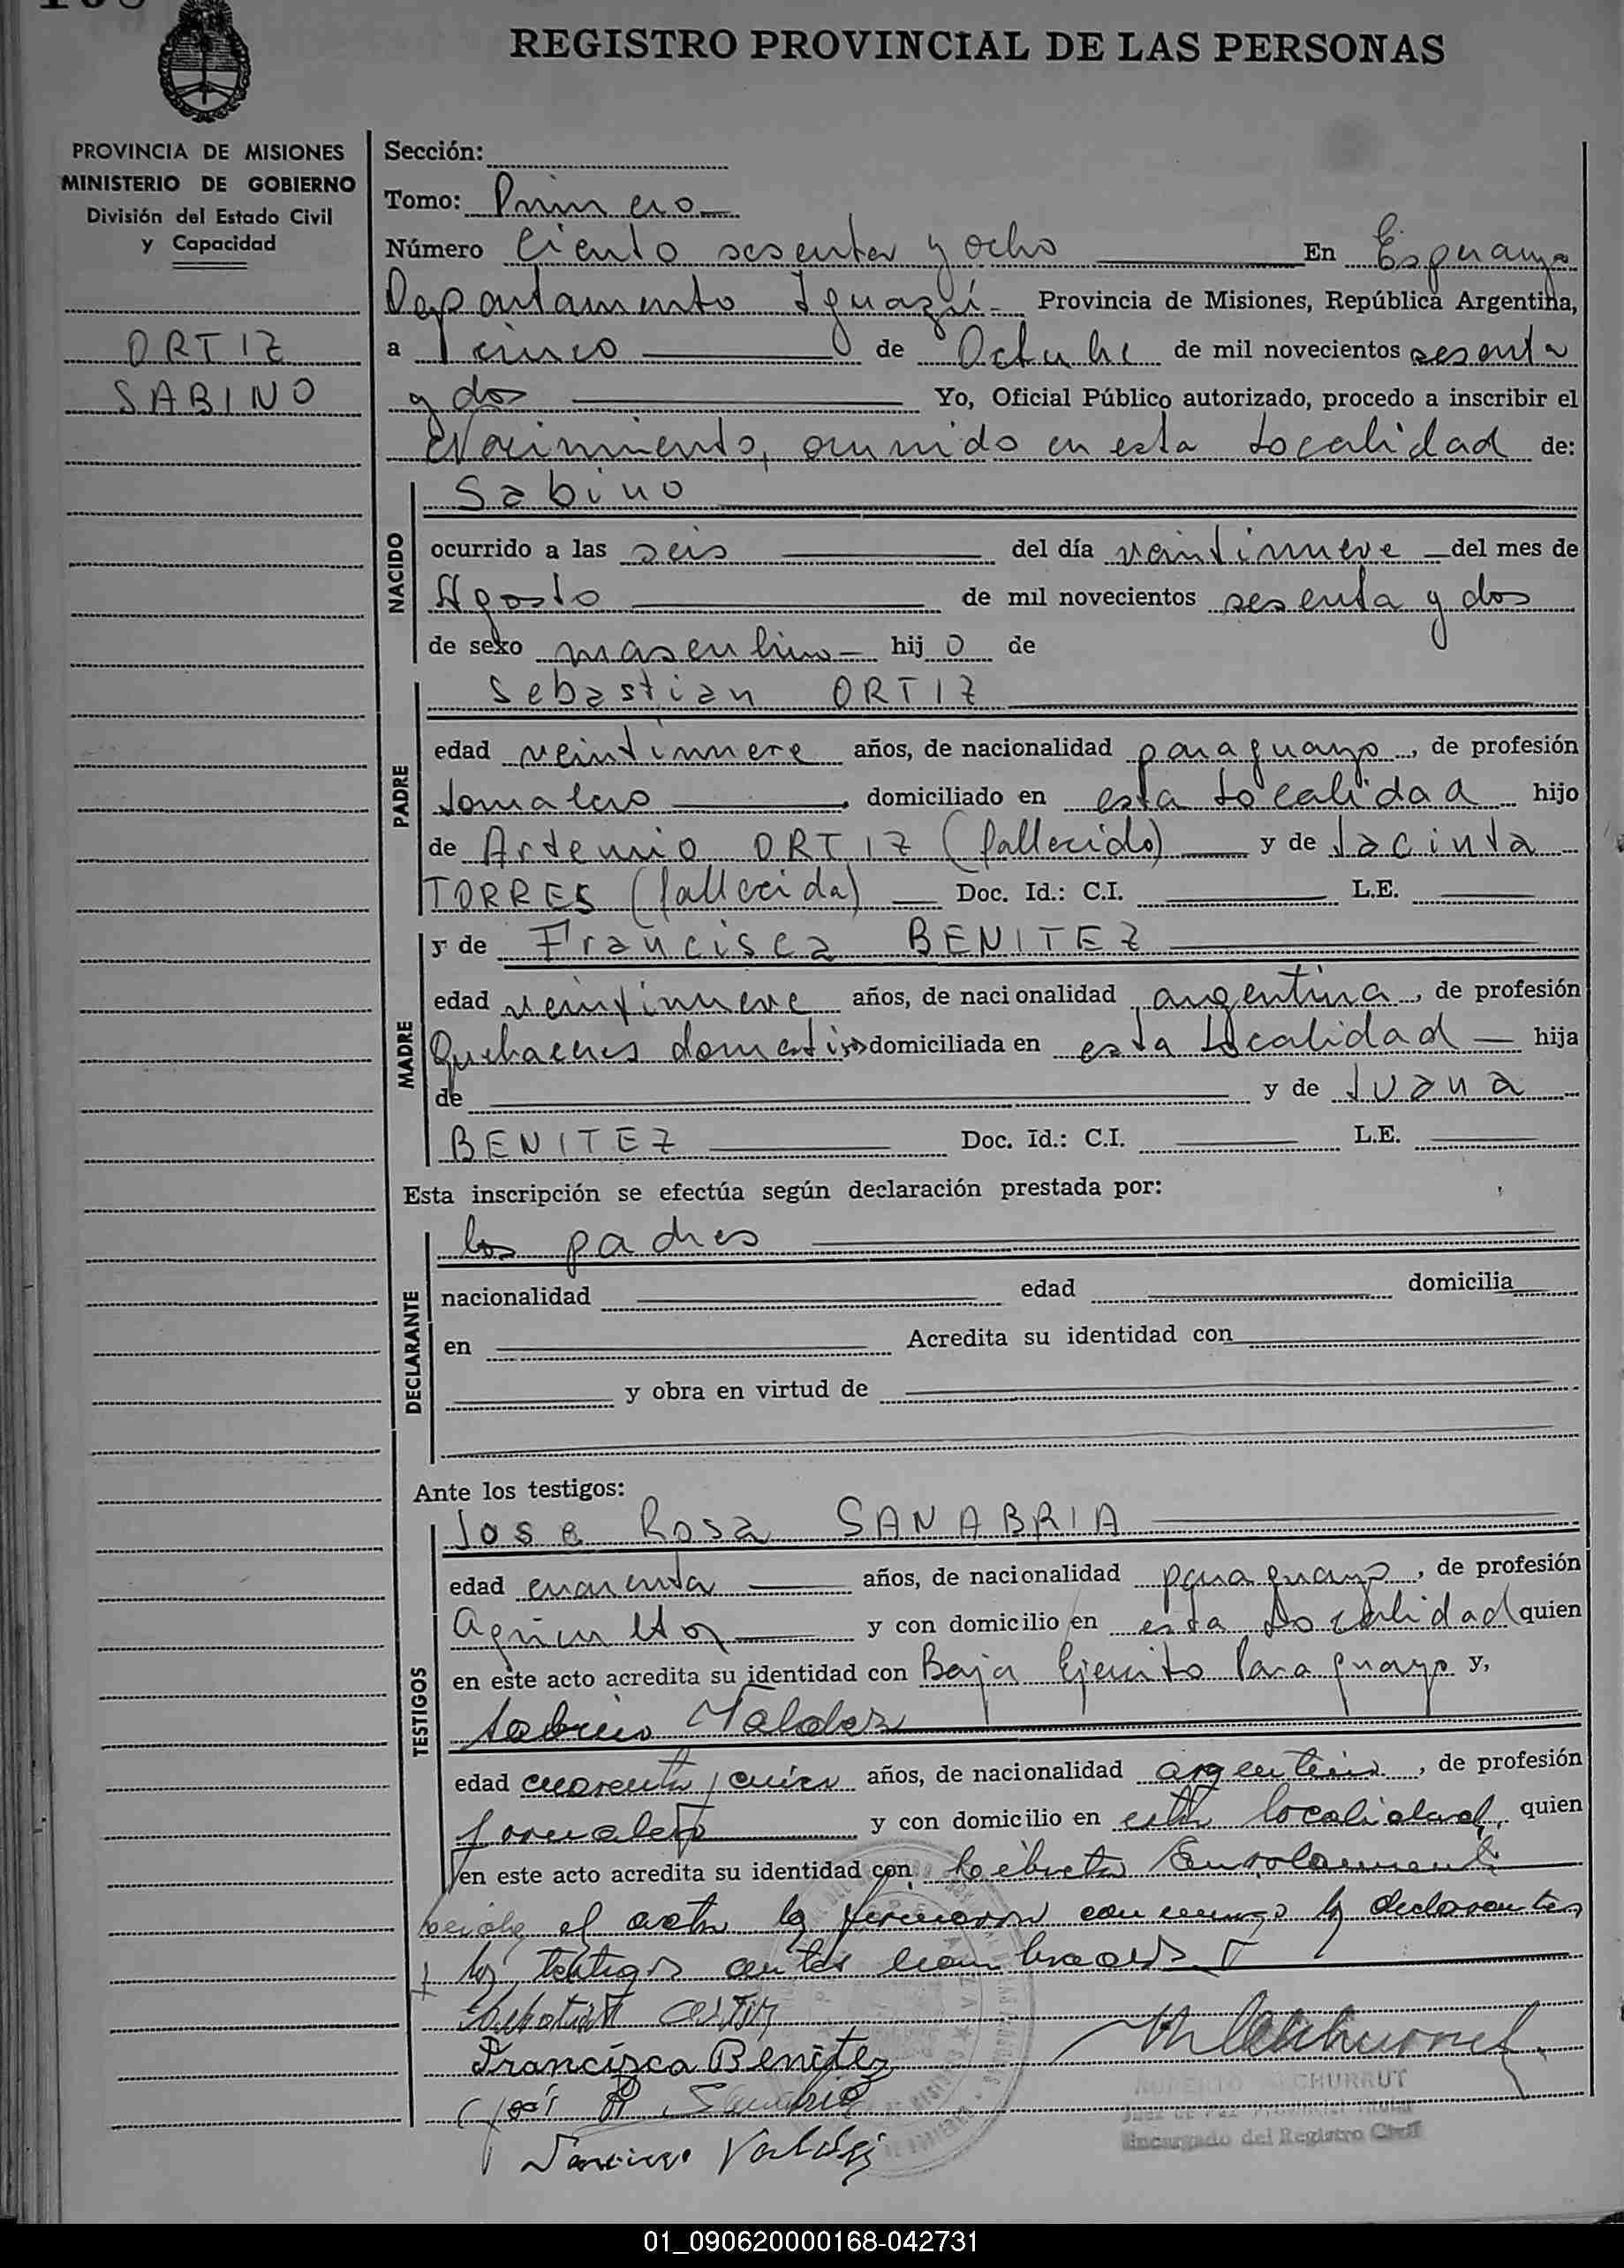 168
REGISTRO PROVINCIAL DE LAS PERSONAS
PROVINCIA DE MISIONES
MINISTERIO DE GOBIERNO
División del Estado Civil
y Capacidad
ORTIZ
SABINO
Sección:
Tomo: Primero
Número Ciento sesenta y ocho En Esperanza
Departamento Iguazú - Provincia de Misiones, República Argentina,
a cinco de Octubre de mil novecientos sesenta
y dos Yo, Oficial Público autorizado, procedo a inscribir el
Nacimiento, ocurrido en esta localidad de:
NACIDO
Sabino
ocurrido a las seis del día veintinueve del mes de
Agosto de mil novecientos sesenta y dos
de sexo masculino - hijo de
PADRE
Sebastian ORTIZ
edad veintinueve años, de nacionalidad paraguayo, de profesión
Jornalero, domiciliado en esta localidad hijo
de Artemio ORTIZ (fallecido) y de Jacinta
TORRES (fallecida) Doc. Id.: C.I. L.E.
MADRE
y de Francisca BENITEZ
edad veintinueve años, de nacionalidad argentina, de profesión
Quehaceres domesticos domiciliada en esta localidad hija
de y de Juana
BENITEZ Doc. Id.: C.I. L.E.
Esta inscripción se efectúa según declaración prestada por:
DECLARANTE
los padres
nacionalidad edad domicilia
en Acredita su identidad con
y obra en virtud de
Ante los testigos:
TESTIGOS
Jose Rosa SANABRIA
edad cuarenta años, de nacionalidad paraguayo, de profesión
Agricultor y con domicilio en esta localidad quien
en este acto acredita su identidad con Baja Ejercito Paraguayo y,
Valdez
edad cuarenta y cinco años, de nacionalidad argentino, de profesión
jornalero y con domicilio en esta localidad, quien
en este acto acredita su identidad con Libreta Enrolamiento
el acta la firmaron conmigo los declarantes
y los testigos antes nombrados
Ortiz
Francisca Benitez
José R Sanabria
Valdez
CHURRUT
Encargado del Registro Civil
01_090620000168-042731